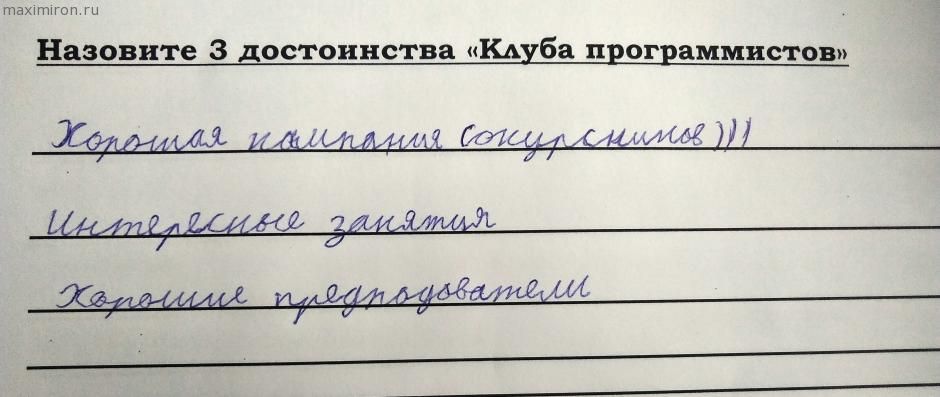 maximiron.ru
Назовите 3 достоинства «Клуба программистов»
Хорошая компания сокурсников)))
Интересные занятия
Хорошие предподователи